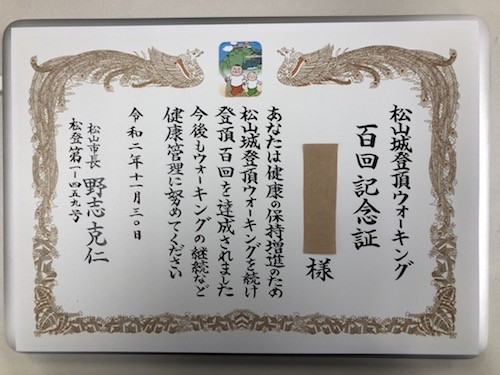 松山城登頂ウォーキング
百回記念証
様
あなたは健康の保持増進のため
松山城登頂ウォーキングを続け
登頂百回を達成されました
今後もウォーキングの継続など
健康管理に努めてください
令和二年十一月三〇日
松山市長 野志克仁
松登第一-四五九号